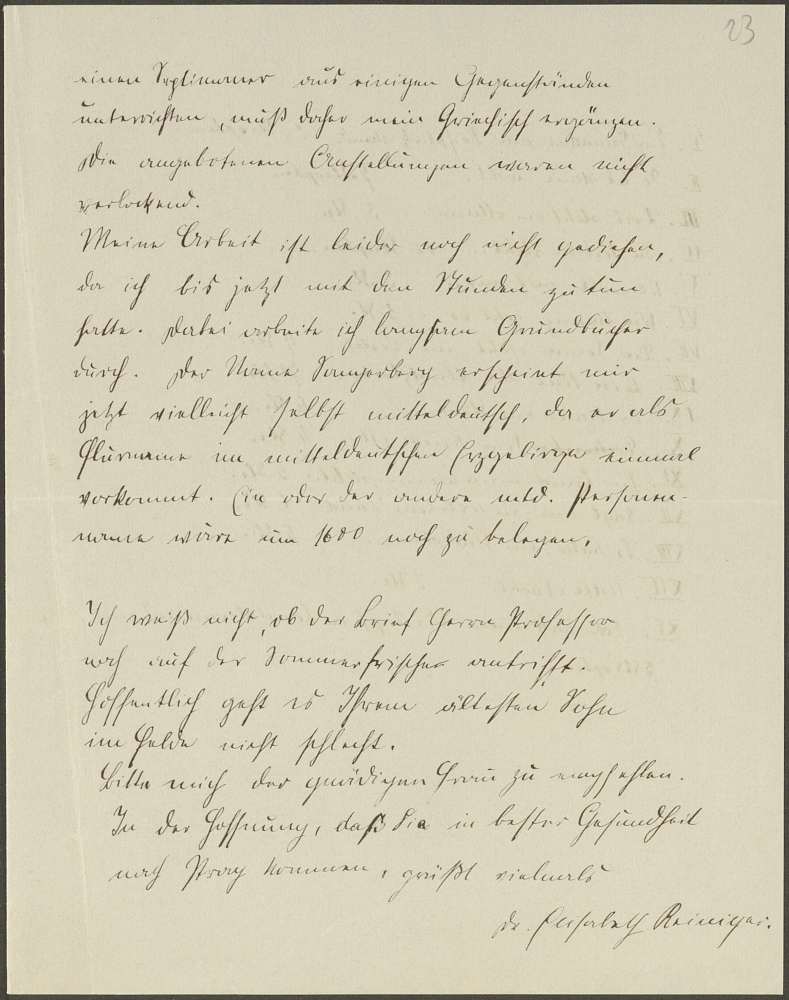 23
einen Septimaner aus einigen Gegenständen
unterrichten, muß daher mein Griechisch ergänzen.
Die angebotenen Anstellungen waren nicht
verlockend.
Meine Arbeit ist leider noch nicht gediehen,
da ich bis jetzt mit den Stunden zu tun
hatte. Dabei arbeite ich langsam Grundbücher
durch. Der Name Sangerberg erscheint mir
jetzt vielleicht selbst mitteldeutsch, da er als
Flurname im mitteldeutschen Erzgebirge einmal
vorkommt. Ein oder der andere mtd. Personen-
name wäre um 1600 noch zu belegen.
Ich weiß nicht, ob der Brief Herrn Professor
noch auf der Sommerfrische antrifft.
Hoffentlich geht es Ihrem ältesten Sohn
im Felde nicht schlecht.
Bitte mich der gnädigen Frau zu empfehlen.
In der Hoffnung, daß Sie in bester Gesundheit
nach Prag kommen, grüßt vielmals
Dr. Elisabeth Reiniger.